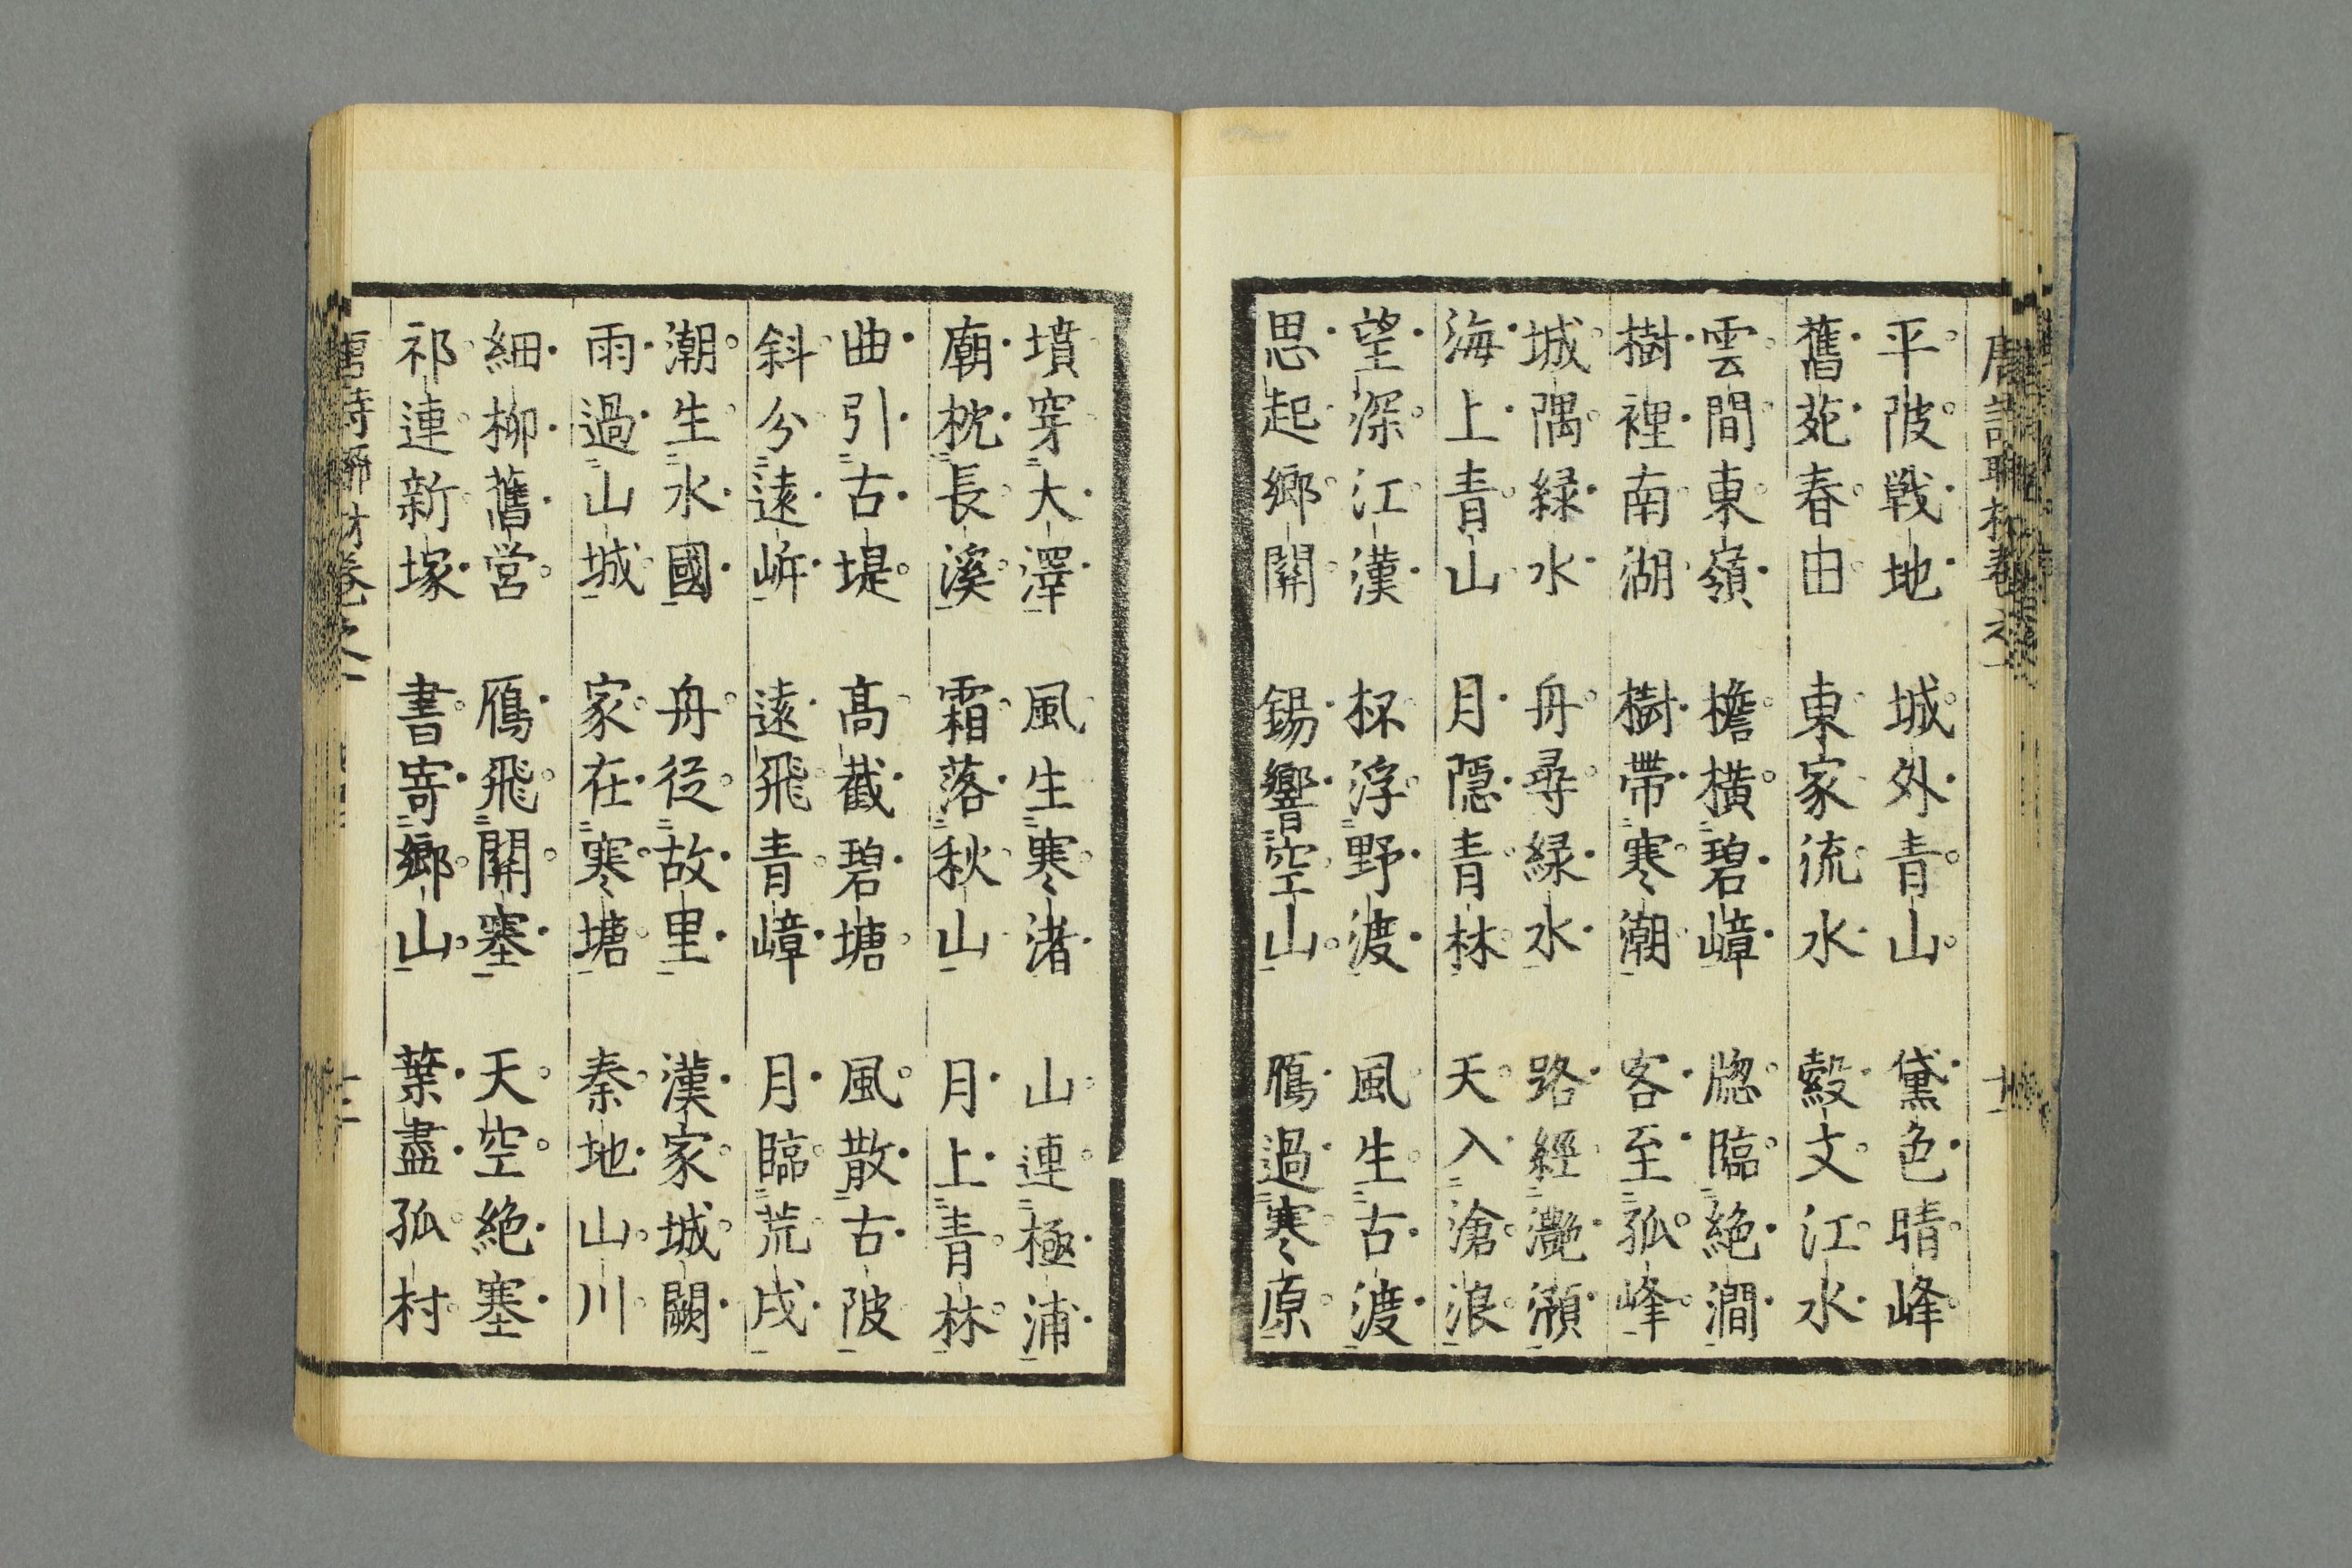 唐詩聯材卷之一
平陂戰地 城外青山 黛色晴峰
舊苑春田 東家流水 縠文江水
雲間東嶺 檐橫碧嶂 牕臨絶澗
樹裡南湖 樹帶寒潮 客至孤峰
城隅緑水 舟尋緑水 路經灔澦
海上青山 月隱青林 天入滄浪
望深江漢 杯浮野渡 風生古渡
思起鄉關 錫響空山 鴈過寒原
墳穿大澤 風生寒渚 山連極浦
廟枕長溪 霜落秋山 月上青林
曲引古堤 高截碧塘 風散古陂
斜分遠岸 遠飛青嶂 月臨荒戍
潮生水國 舟從故里 漢家城闕
雨過山城 家在寒塘 秦地山川
細柳舊営 鴈飛關塞 天空絶塞
祁連新塚 書寄鄉山 葉盡孤村
唐詩聯材卷之一